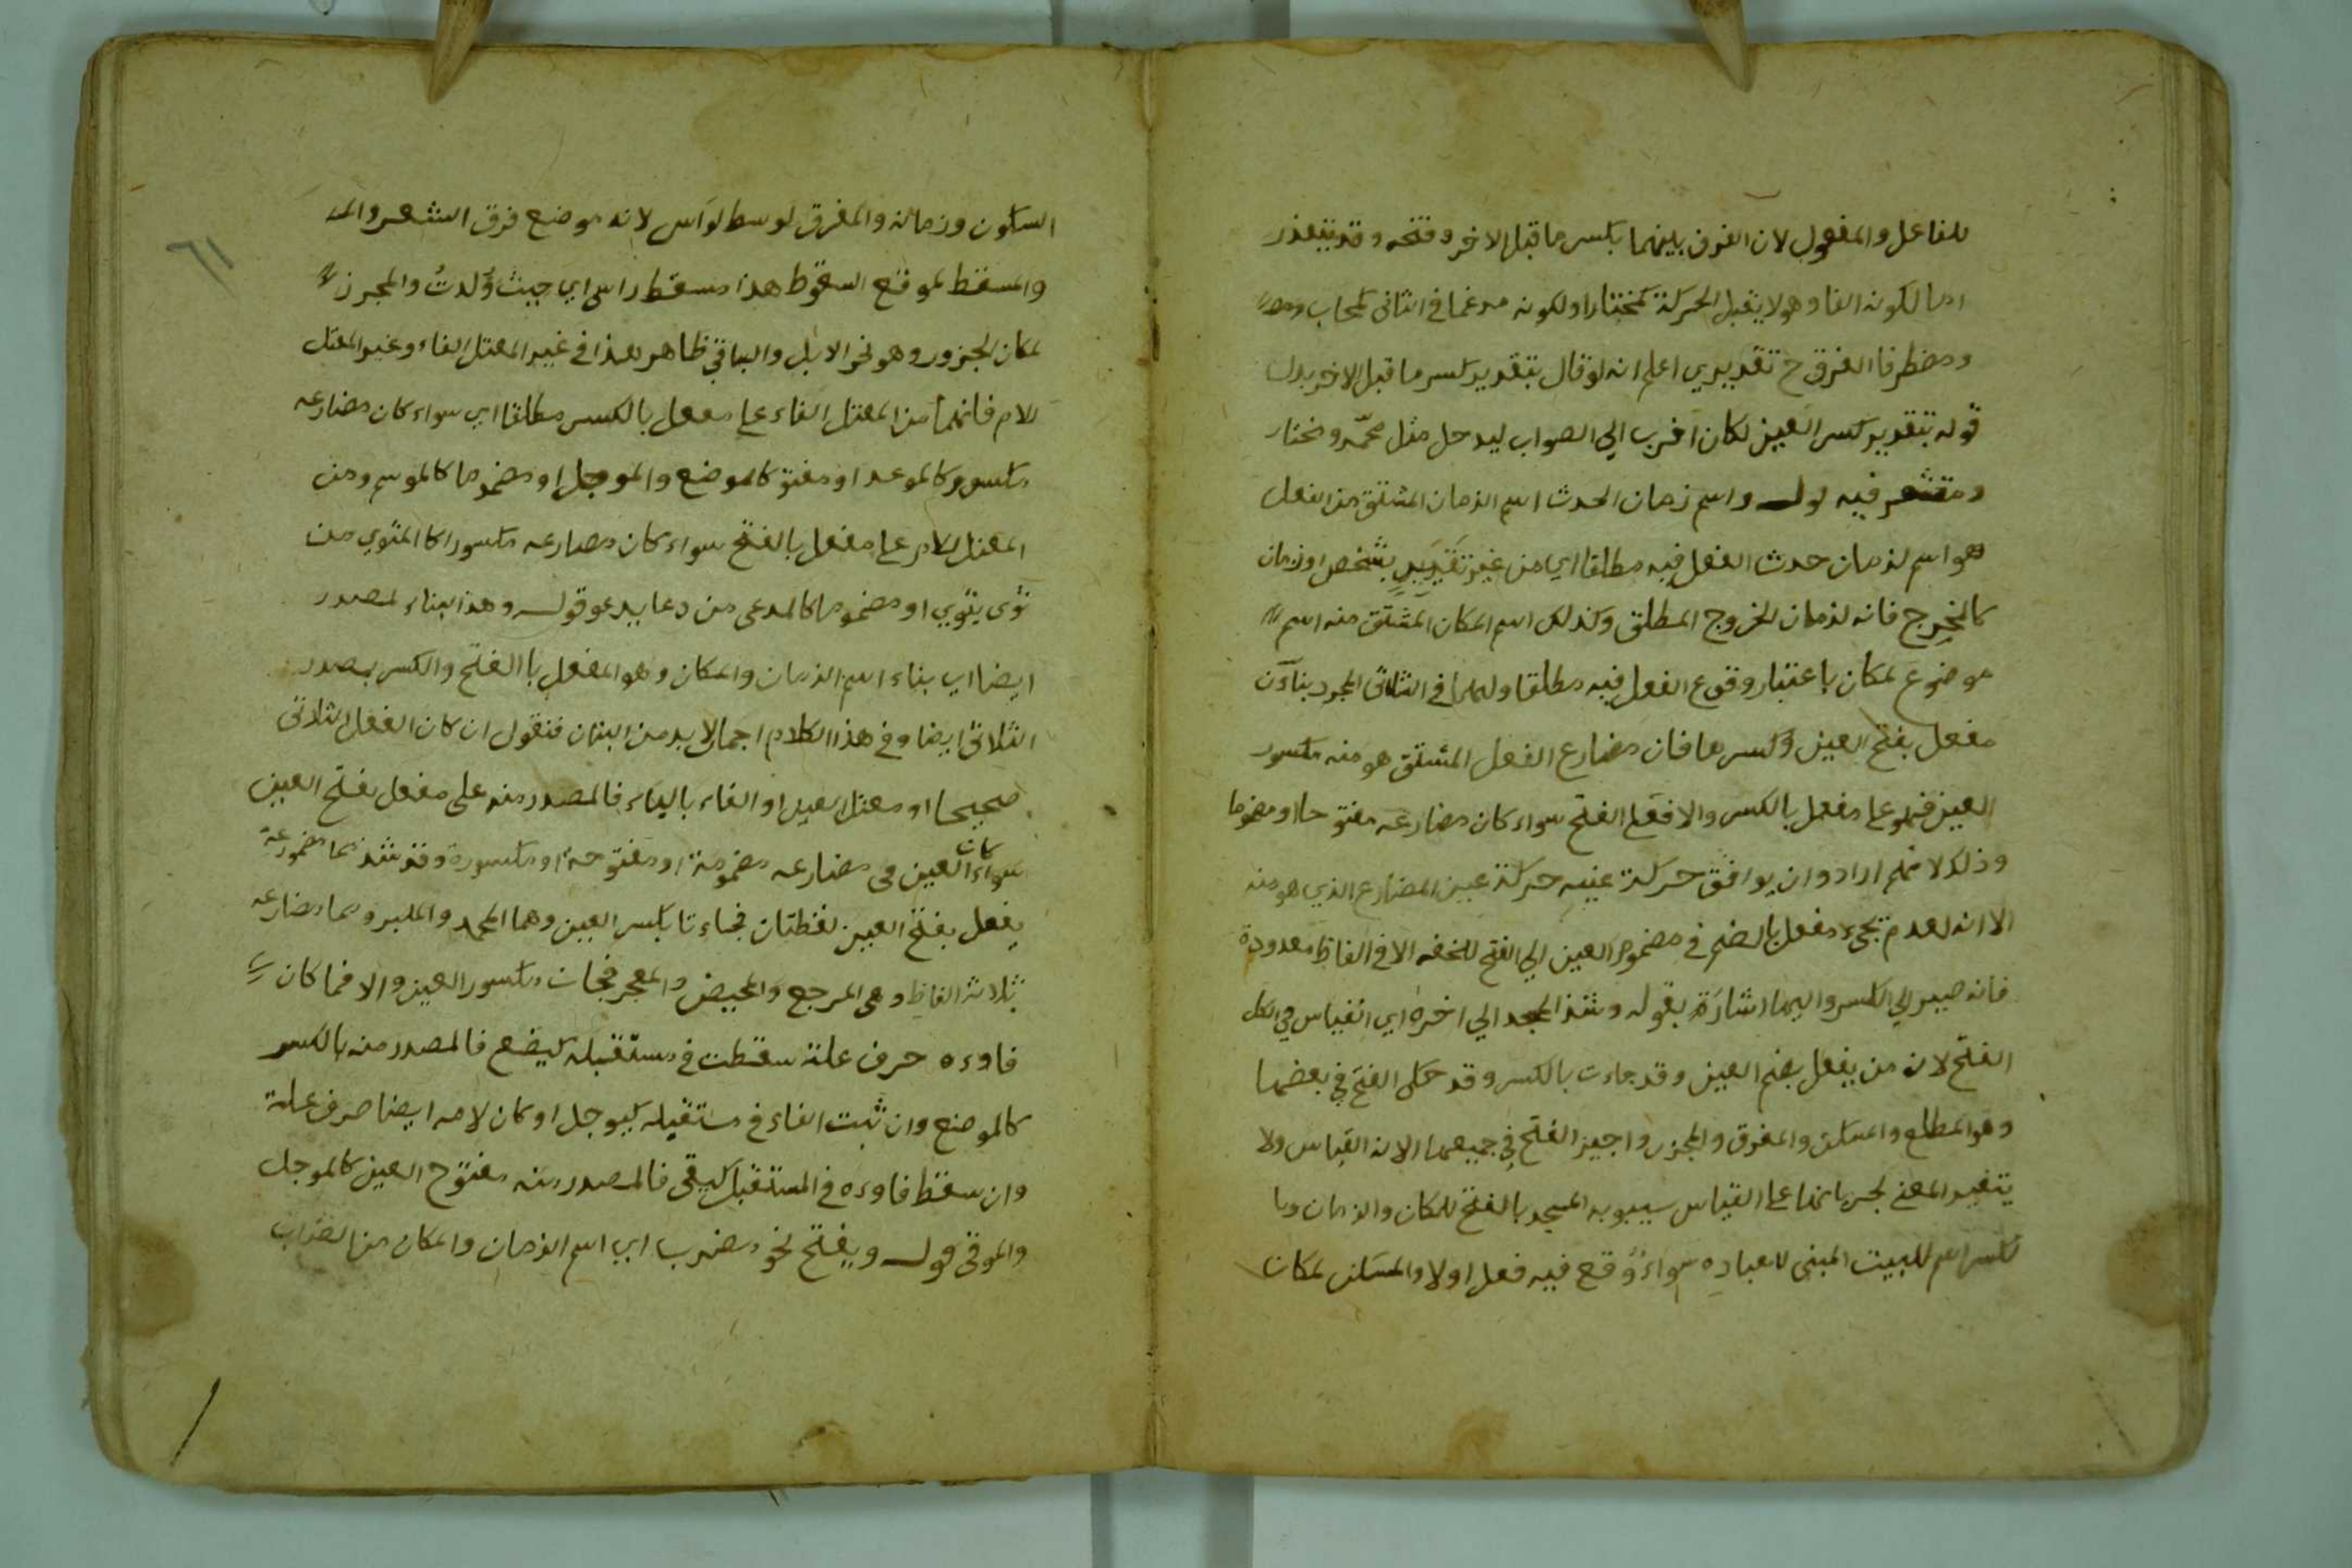 للفاعل والمفعول لان الفرق بينهما بكسر ما قبل الاخر وفتحه وقد يتعذر
اما لكونه الفا وهو لا يقبل الحركة كمختار او لكونه مدغما في الثاني كمحاب
ومضطر فالفرق ح تقديري اعلم انه لو قال بتقدير كسر ما قبل الاخر بدل
قوله بتقدير كسر العين لكان اقرب الي الصواب ليدخل مثل محمّر ومختار
ومقشعر فيه قوله واسم زمان الحدث اسم الزمان المشتق من الفعل
هو اسم لزمان حدث الفعل فيه مطلقا اي من غير تقييد بشخص او زمان
كالمخرج فانه لزمان الخروج المطلق وكذلك اسم المكان المشتق منه اسم
موضوع لمكان باعتبار وقوع الفعل فيه مطلقا ولهما في الثلاثي المجرد بناآن
مفعل بفتح العين وكسرها فان مضارع الفعل المشتق هو منه مكسور
العين فهو علي مفعل بالكسر والا فعلي الفتح سواء كان مضارعه مفتوحا او مضموما
وذلك لانهم ارادوا ان يوافق حركة عينه حركة عين المضارع الذي هو منه
الا انه لعدم مجيء مفعل بالضم في مضموم العين الي الفتح للخفه الا في الفاظ معدودة
فانه صير الي الكسر واليها اشارة بقوله وشذ المسجد الي اخره اي القياس في الكل
الفتح لان من يفعل بضم العين وقد جاءت بالكسر وقد حكي الفتح في بعضها
وهو المطلع والمسكن والمفرق والمجزر واجيز الفتح في جميعها الا ان القياس ولا
يتغير المعني لجريانها علي القياس سيبويه المسجد بالفتح للمكان والزمان وبا
لكسر اسم للبيت المبني للعباده سواء وقع فيه فعل اولا والمسكن لمكان
السكون وزمانه والمفرق لوسط الراس لانه موضع فرق الشعر
والمسقط لموقع السقوط هذا مسقط راسي اي حيث وُلدتُ والمجزر
لمكان الجزور وهو نحر الابل والباقي ظاهر هذا في غير المعتل الفاء وغير المعتل
للام فانهما من المعتل الفاء علي مفعل بالكسر مطلقا اي سواء كان مضارعه
مكسور كالموعد او مفتو كالموضع والموجل او مضموما كالموسم ومن
المعتل اللام علي مفعل بالفتح سواء كان مضارعه مكسورا كالمثوي من
ثوى يثوي او مضموما كالمدعى من دعا يدعو قوله وهذا البناء لمصدر
ايضا اي بناء اسم الزمان والمكان وهو المفعل باالفتح والكسر بصدر
الثلاثي ايضا وفي هذا الكلام اجمال لا بد من البيان فنقول ان كان الفعل الثلاثي
صحيحا او معتل العين او الفاء بالياء فالمصدر منه على مفعل بفتح العين
سواء كان العين في مضارعه مضمومة او مفتوحة او مكسورة وقد شذ مما مضموعة
يفعل بفتح العين لفظتان فجاءتا بكسر العين وهما المحمد والمكبر ومما مضارعه
ثلاثة الفاظ وهي المرجع والمحيض والمعجز فجات مكسور العين والا فما كان
فاوءه حرف علة سقطت في مستقبله كيضع فالمصدر منه بالكسر
كالموضع وان ثبت الفاء في مستقبله كيوجل او كان لامه ايضا حرف علة
وان سقط فاوءه في المستقبل كيقي فالمصدر منه مفتوح العين كالموجل
والموقي قوله ويفتح نحو مضرب اي اسم الزمان والمكان من الضراب